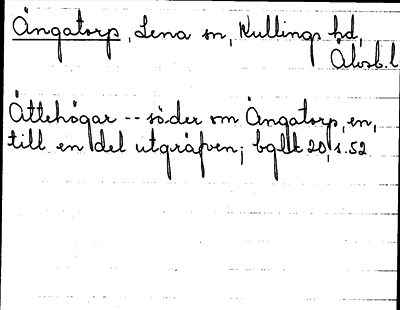 Ängatorp, Lena sn, Kullings hd,
Älvsb. l
Ättehögar -- söder om Ängatorp, en,
till en del utgräfven; bglk 20, s. 52